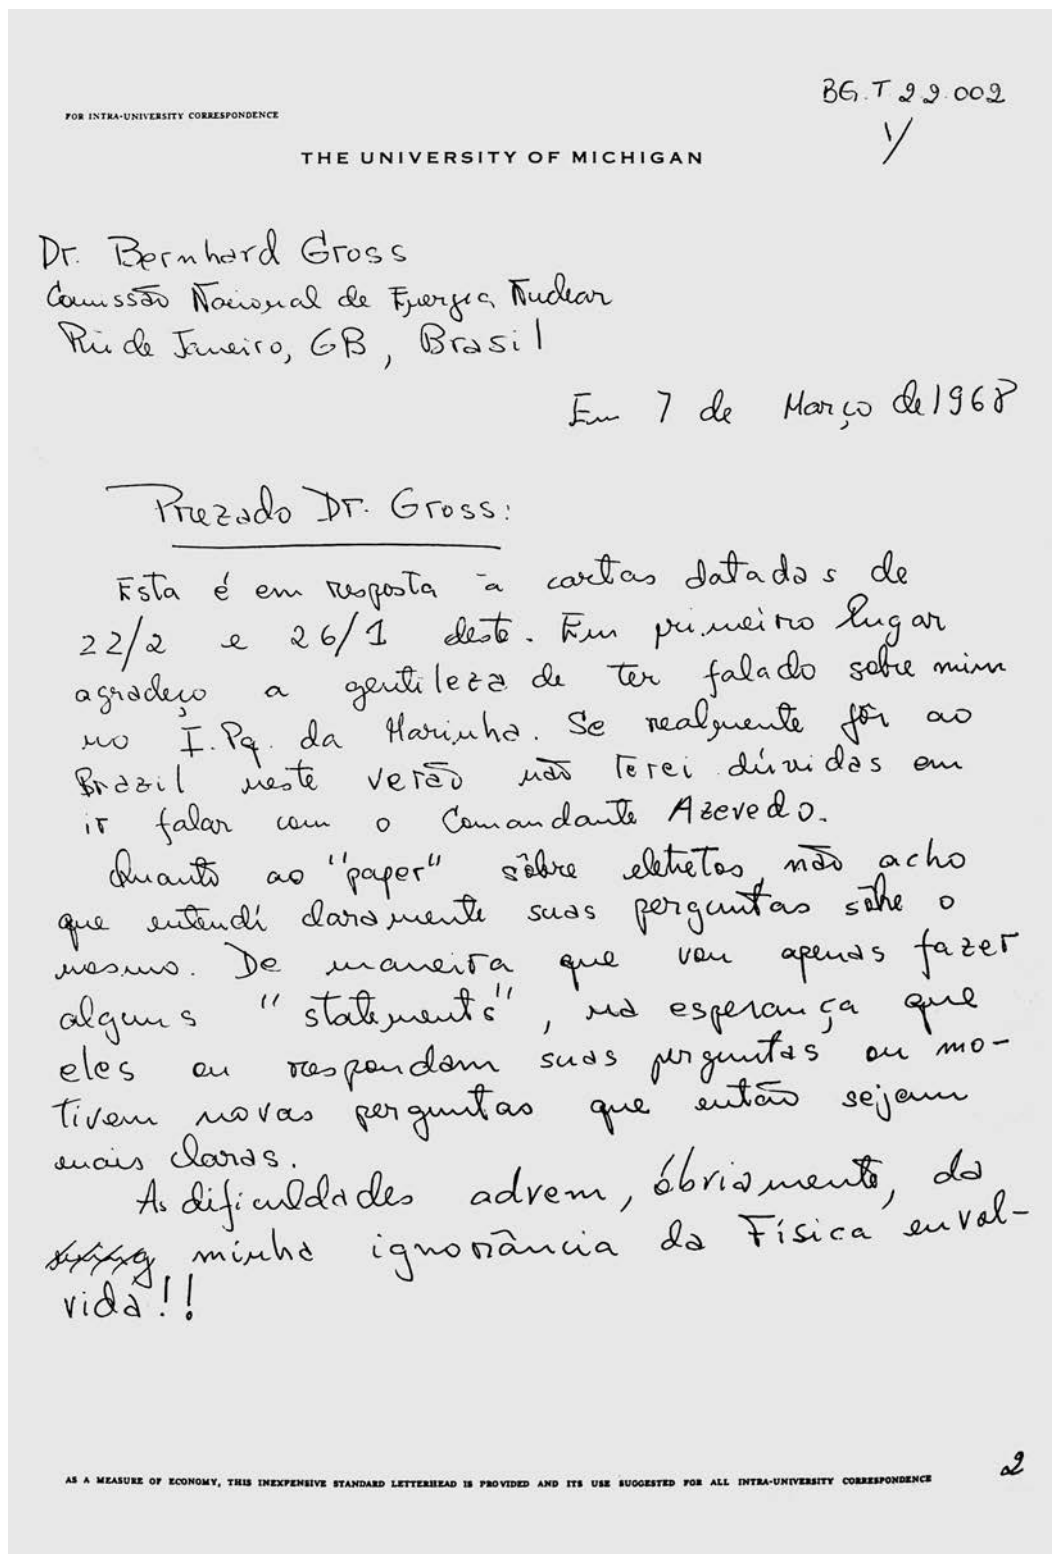 BG.T 22.002
1/
FOR INTRA-UNIVERSITY CORRESPONDENCE
THE UNIVERSITY OF MICHIGAN
Dr. Bernhard Gross
Comissão Nacional de Energia Nuclear
Rio de Janeiro, GB, Brasil
Em 7 de Março de 1968
Prezado Dr. Gross:
Esta é em resposta à cartas datadas de
22/2 e 26/1 deste. Em primeiro lugar
agradeço a gentileza de ter falado sobre mim
no I. Pq. da Marinha. Se realmente fôr ao
Brazil neste verão não terei dúvidas em
ir falar com o Comandante Azevedo.
Quanto ao "paper" sôbre eletretos, não acho
que entendí claramente suas perguntas sôbre o
mesmo. De maneira que vou apenas fazer
alguns "statements", na esperança que
eles ou respondam suas perguntas ou mo-
tivem novas perguntas que então sejam
mais claras.
As dificuldades advem, óbviamente, da
minha ignorância da Física envol-
vida!!
2
AS A MEASURE OF ECONOMY, THIS INEXPENSIVE STANDARD LETTERHEAD IS PROVIDED AND ITS USE SUGGESTED FOR ALL INTRA-UNIVERSITY CORRESPONDENCE